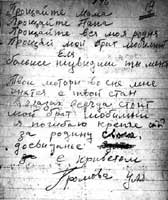 Прощайте Мама
Прощайте Папа
Прощайте вся моя родня
Прощай мой брат любимый
Еля
больше неувидиш ты меня
Твои моторы во сне мне
снятся твой стан
в глазах всегда стоит
мой брат любимый
я погибаю крепче
за родину
досвидание
с приветом
Громова Уля